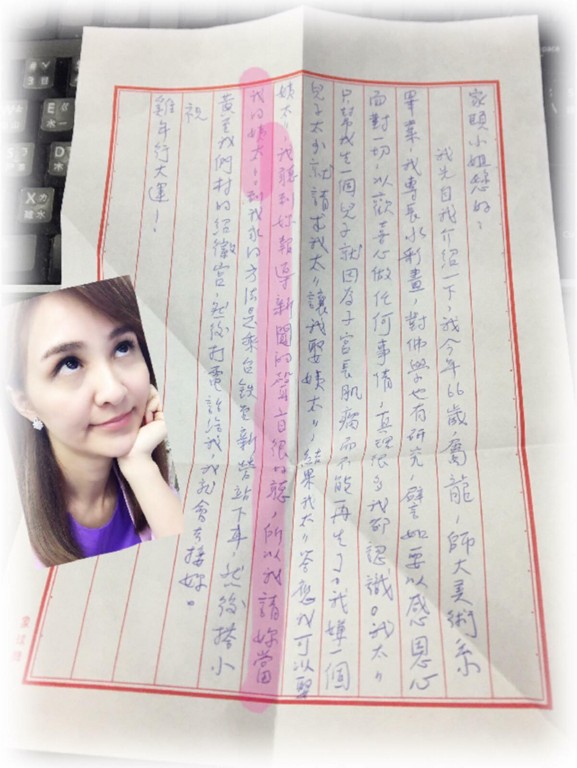 家頤小姐您好：
我先自我介紹一下，我今年66歲，屬龍，師大美術系
畢業，我專長水彩畫，對佛學也有研究，譬如要以感恩心
面對一切，以歡喜心做任何事情，真理很多我都認識。我太〃
只幫我生一個兒子就因為子宮長肌瘤而不能再生了。我嫌一個
兒子太少就請求我太〃讓我娶姨太〃，結果我太〃答應我可以娶
姨太〃我聽到妳報導新聞的聲音很好聽，所以我請妳當
我的姨太〃，到我家的方法是乘台鐵至新營站下車然後搭小
黃至我們村的紹徽宮，然後打電話給我，我就會去接妳。
祝
雞年行大運！